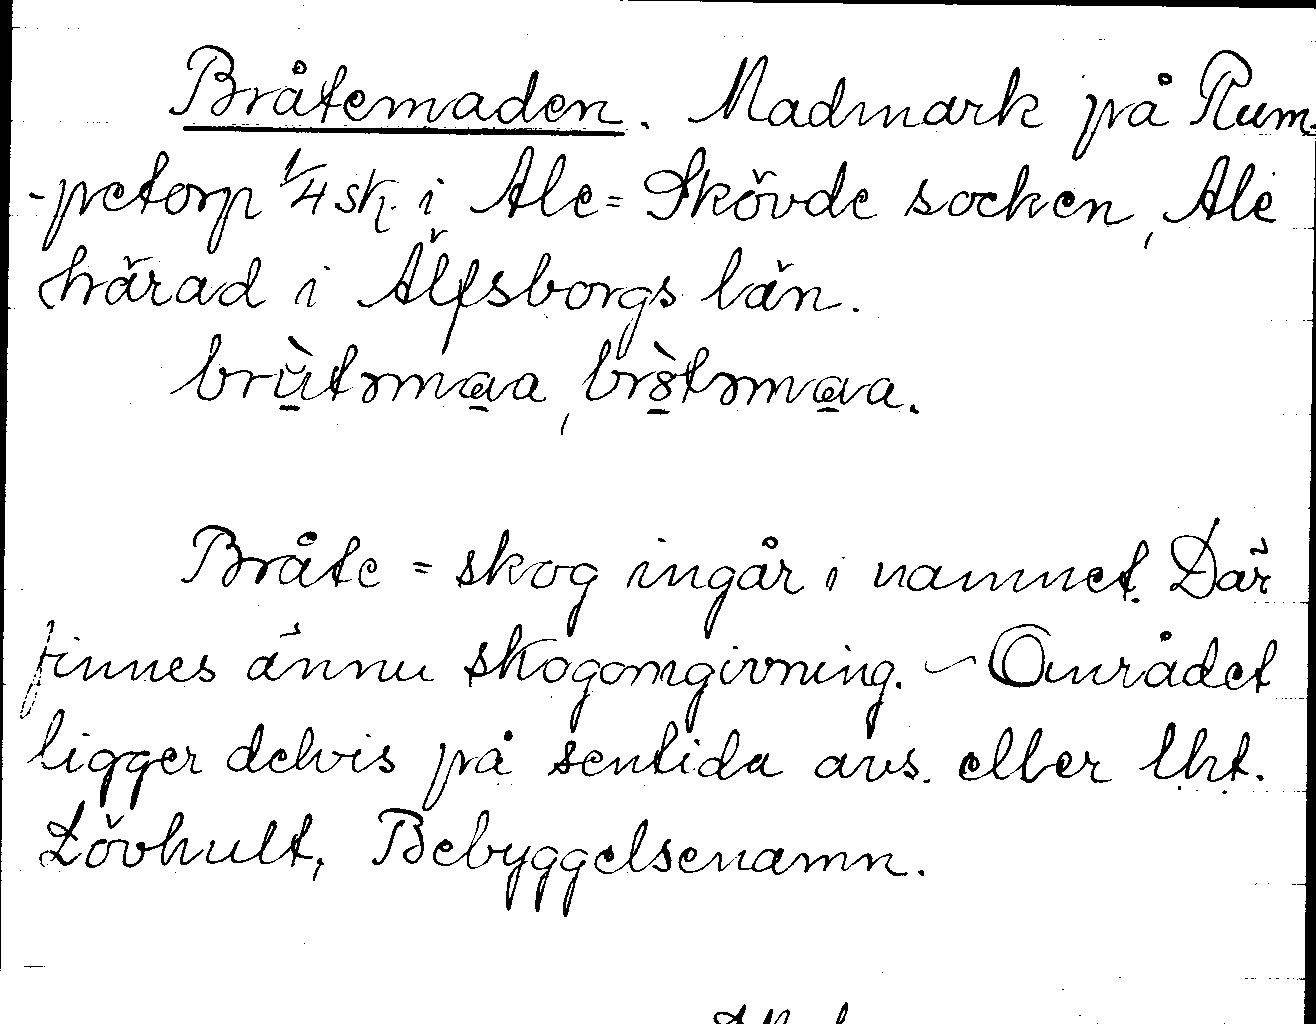 Bråtemaden. Madmark på Rum-
-petorp 1/4 sk. i Ale-Skövde socken, Ale
härad i Älfsborgs län.
brùtəmaa, brò̤təmaa.
Bråte = skog ingår i namnet. Där
finnes ännu skogomgivning. – Området
ligger delvis på sentida avs. eller lht.
Lövhult, Bebyggelsenamn.